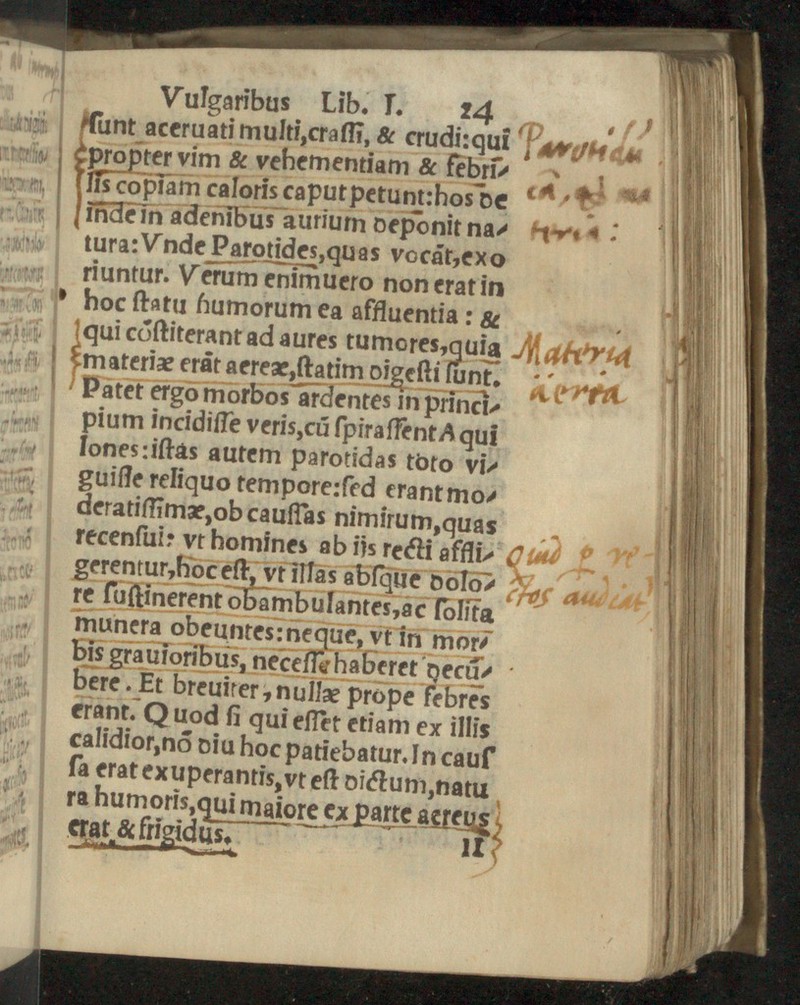 Vulgaribus Lib. I. 24
ſunt aceruati multi,craſſi, & crudi:qui
propter vim & vehementiam & febri⸗
lis copiam caloris caput petunt:hos de
inde in adenibus aurium deponit na⸗
tura: Vnde Parotides,quas vocāt,exo
riuntur. Verum enimuero non erat in
hoc ſtatu humorum ea affluentia : &
qui cōſtiterant ad aures tumores,quia
materiæ erāt aereæ,ſtatim digeſti ſunt.
Patet ergo morbos ardentes in princi⸗
pium incidiſſe veris,cū ſpiraſſent Aqui
lones:iſtas autem parotidas toto vi⸗
guiſſe reliquo tempore:ſed erant mo⸗
deratiſſimæ,ob cauſſas nimirum,quas
recenſui: vt homines ab ijs recti affli⸗
gerentur,hoc eſt, vt illas abſque dolo⸗
re ſuſtinerent obambulantes,ac ſolita
munera obeuntes: neque, vt in mor⸗
bis grauioribus, neceſſe haberet decū⸗
bere. Et breuiter, nullæ prope febres
erant. Quod ſi qui eſſet etiam ex illis
calidior,nō diu hoc patiebatur. In cauſ
ſa erat exuperantis,vt eſt dictum,natu
ra humoris,qui maiore ex parte aereus
erat & frigidus.
II
Materia
aerea